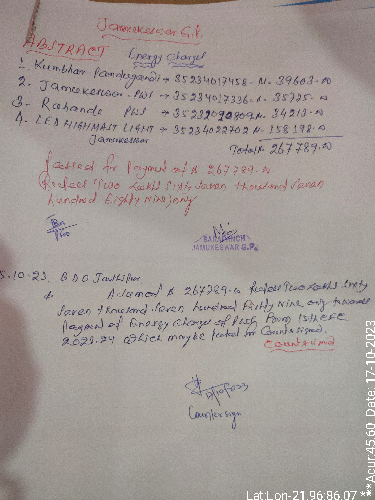 Jamukeswar G.P.
ABSTRACT Energy Charges
1. Kumbhar 35234017458 - 39603
2. Jamukeswar PWS 35234017336 - 35775
3. Rohanda PWS - 34213
4. LED HIGHMAST LIGHT 35234022702 158198
Jamukeswar Total 267789
Passed for payment of Rs 267789
Rupees Two Lakhs Sixty Seven thousand Seven
hundred Eighty Nine only
SARAPANCH
JAMUKESWAR G.P.
.10.23. BDO
267789 Rupees Two Lakhs Sixty
Seven thousand Seven hundred Eighty Nine only towards
payment of Energy Charges of from
2023-24 which may be for Countersigned.
Countersigned
Countersign
Lat:Lon-21.96:86.07 ***Acur:45.60 Date: 17-10-2023